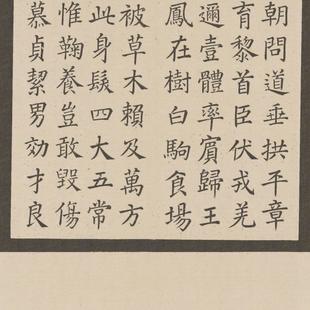 朝問道垂拱平章
育黎首臣伏戎羌
邇壹體率賓歸王
鳳在樹白駒食場
被草木賴及萬方
此身髮四大五常
惟鞠養豈敢毀傷
慕貞絜男効才良